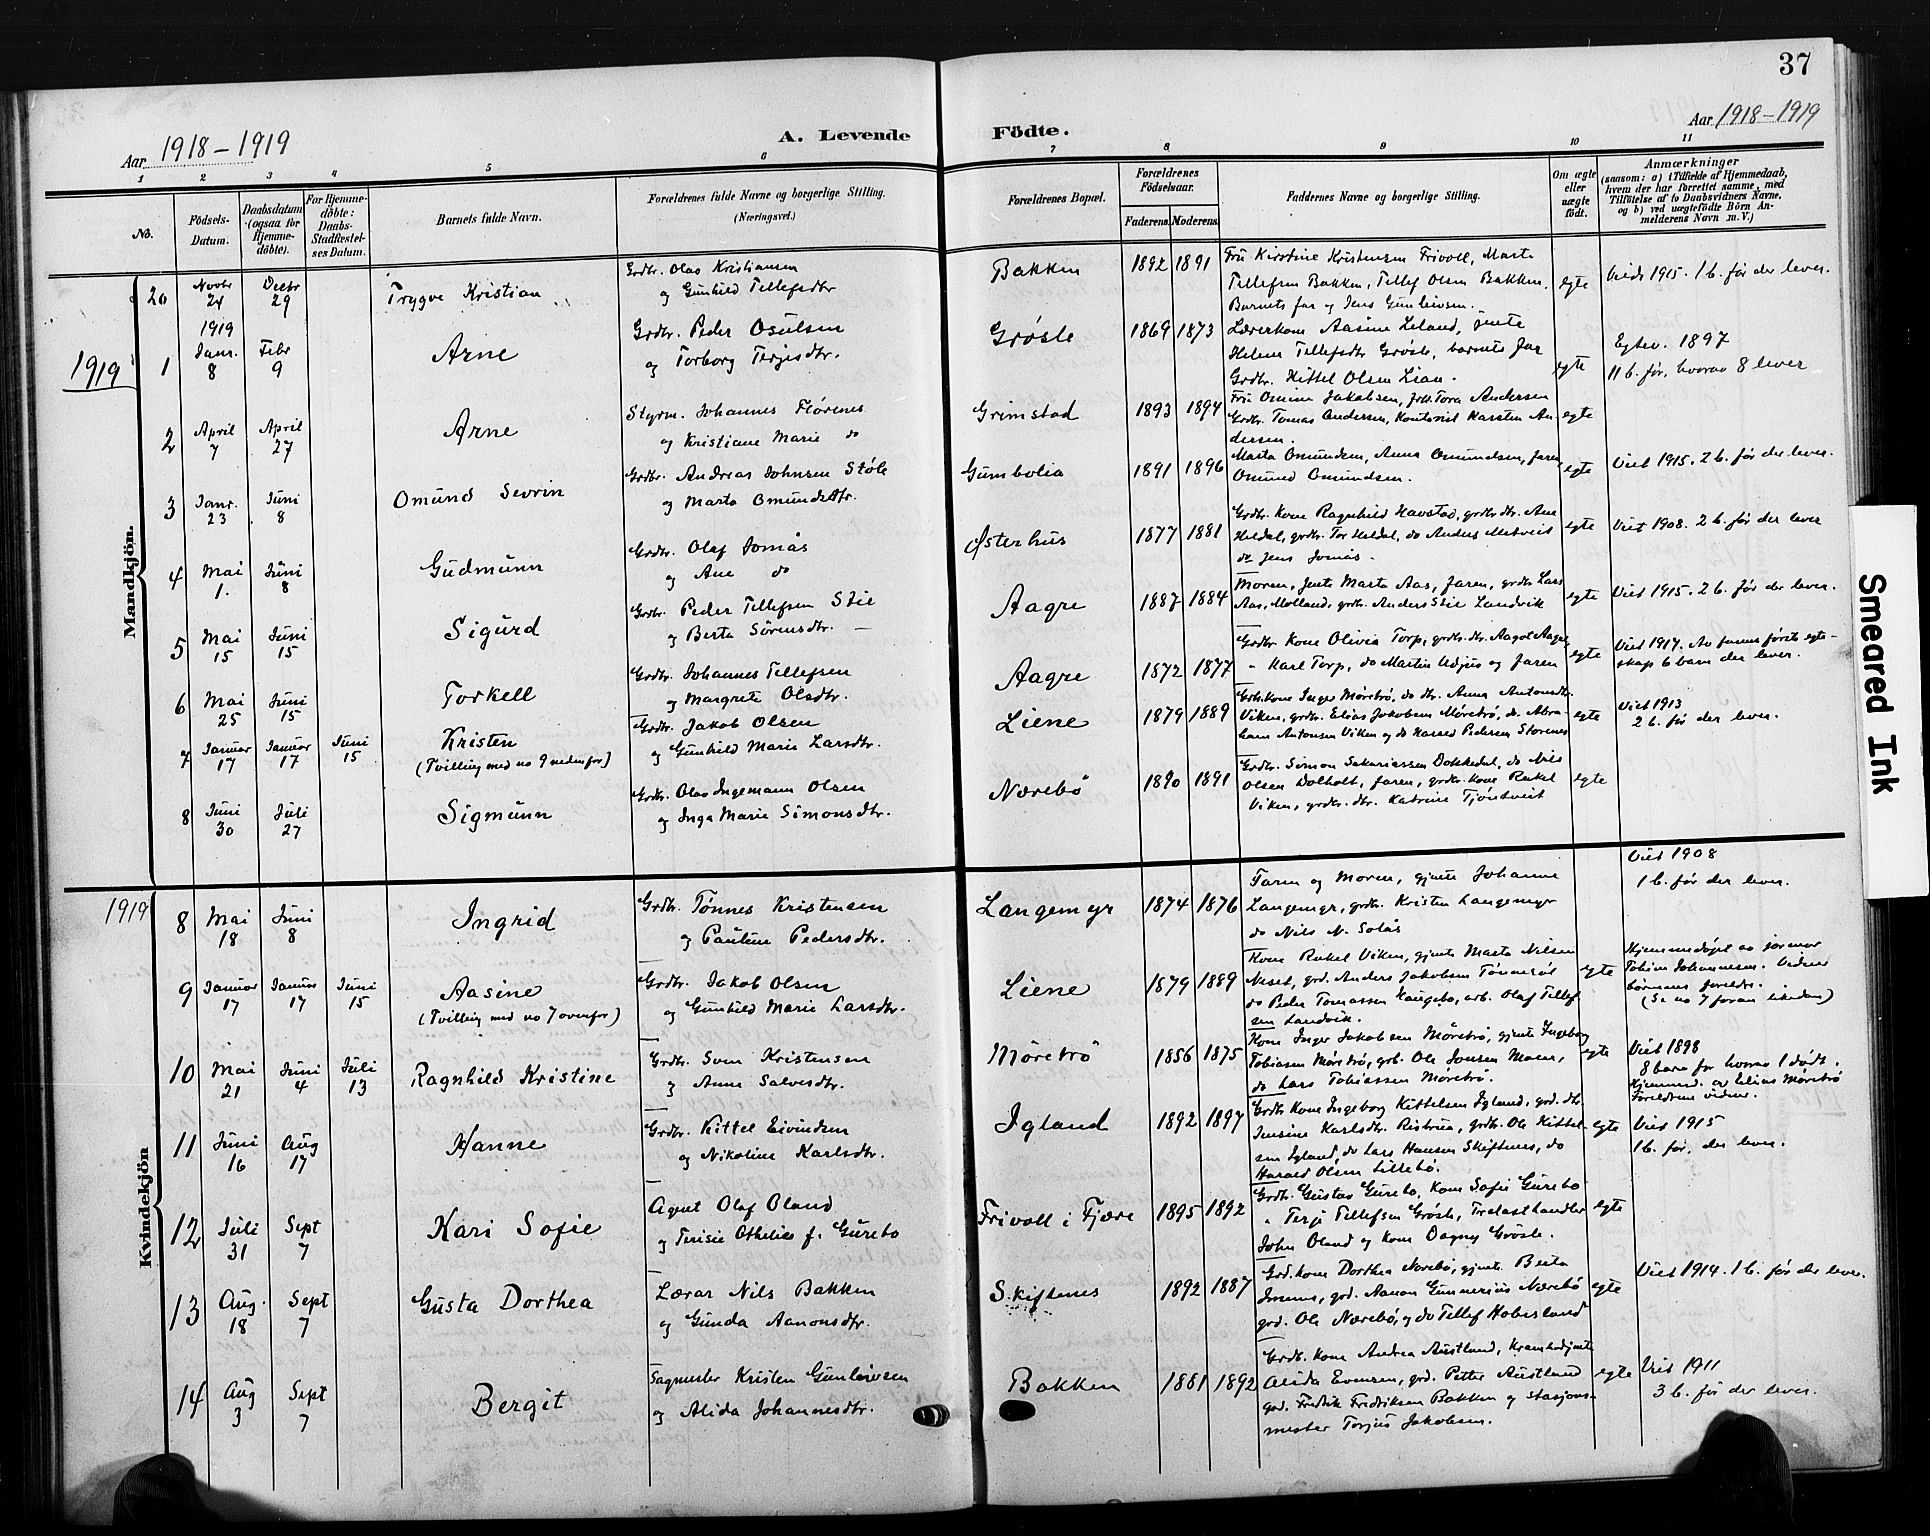 37
Aar 1918-1919
A. Levende Födte.
Aar 1918-1919
1 2 3 4 5 6 7 8 9 10 11
No.
Födsels-Datum.
Daabsdatum (ogsaa for Hjemme-döbte).
For Hjemme-döbte: Daabs-Stadfæstel-ses Datum.
Barnets fulde Navn.
Forældrenes fulde Navne og borgerlige Stilling.
(Næringsvei.)
Forældrenes Bopæl.
Forældrenes Födselsaar.
Faderens. Moderens.
Faddernes Navne og borgerlige Stilling.
Om ægte eller uægte födt.
Anmærkninger
(saasom: a) i Tilfælde af Hjemmedaab,
hvem der har forrettet samme, med
Tilföielse af to Daabsvidners Navne,
og b) ved uægtefödte Börn An-
melderens Navn m. V.)
Mandkjön.
20 Novbr 24 Decbr 29 Trygve Kristian
Grdbr. Olav Kristiansen
og Gunhild Tellefsdtr
Bakken 1892 1891
Fru Kirstine Kristensen Frivoll, Marte
Tellefsen Bakken, Tellef Olsen Bakken,
Barnets far og Jens Gunleivsen.
egte
Vieds 1915. 1 b. før der lever.
1919
1919
1 Janr. 8 Febr 9 Arne
Grdbr. Peder Osulsen
og Torborg Terjesdtr.
Grøsle 1869 1873
Lærerkone Aasine Leland, jente
Helene Tellefsdtr Grøsle, barnets far
Grdbr. Kittel Olsen Lian.
egte
Egtev. 1897
11 b. før, hvorav 8 lever
2 April 7 April 27 Arne
Styrm. Johannes Florenes
og Kristiane Marie do
Grimstad 1893 1894
Fru Omine Jakobsen, frk. Tora Andersen
Grdbr. Tomas Andersen, Kontorist Karsten An-
dersen.
egte
3 Janr. 23 Juni 8 Omund Sevrin
Grdbr. Andreas Johnsen Støle
og Marta Omundsdtr.
Gumbolia 1891 1896
Marta Omundsen, Anna Omundsen, faren,
Omund Omundsen.
egte
Viet 1915. 2 b. før der lever.
4 Mai 1. Juni 8 Gudmunn
Grdbr. Olaf Jomås
og Ane do
Østerhus 1877 1881
Grdbr. Kone Ragnhild Havstad, grdbr. dtr. Ane
Heldal, grdbr. Tor Heldal, do Anders Metveit
do Jens Jomås.
egte
Viet 1908. 2 b. før der lever
5 Mai 15 Juni 15 Sigurd
Grdbr. Peder Tellefsen Stie
og Berta Sørensdtr.
Aagre 1887 1884
Moren, jente Marta Aas, faren, grdbr Lars
Aas, Molland, grdbr. Anders Stie Landvik
egte
Viet 1915. 2 b. før der lever.
6 Mai 25 Juni 15 Torkell
Grdbr. Johannes Tellefsen
og Margrete Olsdtr.
Aagre 1872 1877
Grdbr Kone Olivia Torp, grdbr. dtr. Aagot Aagre
" Karl Torp, do Martin Udjus og faren
egte
Viet 1917. Av første egte-
skap 6 barn der lever.
7 Januar 17 Januar 17 Juni 15 Kristen
(Tvilling med no 9 nedenfor)
Grdbr. Jakob Olsen
og Gunhild Marie Larsdtr.
Liene 1879 1889
Grdb. kone Inger Møretrø, do dtr. Anna Antonsdtr.
Viken, grdbr. Elias Jakobsen Møretrø, do. Abra-
ham Antonsen Viken og do Harald Pedersen Storenes
egte
Viet 1913
2 b. før der lever.
8 Juni 30 Juli 27 Sigmunn
Grdbr. Olav Ingemann Olsen
og Inga Marie Simonsdtr.
Nærebø 1890 1891
Grdbr. Simon Sakariassen Dokkedal, do Nils
Olsen Dolholt, faren, grdbr. kone Rakel
Viken, grdbr. dtr. Katrine Tjøntveit
egte
Kvindekjön
1919
8 Mai 18 Juni 8 Ingrid
Grdbr. Tønnes Kristensen
og Pauline Pedersdtr.
Langemyr 1874 1876
Faren og Moren, gjente Johanne
Langemyr, grdbr. Kristen Langemyr
do Nils N. Solås
Viet 1908
1 b. før der lever.
9 Januar 17 Januar 17 Juni 15 Aasine
(Tvilling med no 7 ovenfor)
Grdbr. Jakob Olsen
og Gunhild Marie Larsdtr.
Liene 1879 1889
Kone Rakel Viken, gjente Marta Nilsen
Neset, grd. Anders Jakobsen Tønnesøl
do Peder Tomassen Haugebo, arb. Olaf Tellef-
sen Landvik.
egte
Hjemmedøpt av jormor
Tobine Johannesen. Vidner
børnenes foreldre.
(Se no 7 foran likedan)
10 Mai 21 Juni 4 Juli 13 Ragnhild Kristine
Grdbr. Sven Kristensen
og Anne Salvesdtr.
Møretrø 1856 1875
Kone Inger Jakobsen Møretrø, gjente Ingeborg
Tobiasen Møretrø, grb. Ole Jonsen Moen,
do Lars Tobiassen Møretrø.
egte
Viet 1898
8 barn før hvorav 1 dødt.
Hjemmed. av Elias Møretrø
Foreldrene vidner.
11 Juni 16 Aug 17 Hanne
Grdbr. Kittel Eivindsen
og Nikoline Karlsdtr.
Igland 1892 1897
Grdbr kone Ingeborg Kittelsen Igland, grd. dtr.
Jensine Karlsdtr. Ristveit, grdbr. Ole Kittel-
sen Igland, do Lars Hansen Skiftenes, do
Harald Olsen Lillebø.
egte
Viet 1915
1 b. før, der lever.
12 Juli 31 Sept 7 Kari Sofie
Agent Olaf Oland
og Terisie Othelie f. Gurebo
Frivoll i Fjære 1895 1892
Grdbr. Gustav Gurebo, Kone Sofie Gurebo
" Terje Tellefsen Grøsle, Trælasthandler
John Oland og kone Dagny Grøsle.
egte
13 Aug. 18 Sept 7 Gusta Dorthea
Lærer Nils Bakken
og Gunda Aanonsdtr.
Skiftenes 1892 1887
Grd. kone Dorthea Nærebø, gjente Berta
Imenes, grd. Aanon Gunnerius Nærebø
grd. Ole Nærebø, og do Tellef Haabesland
egte
Viet 1914. 1 b. før der lever.
14 Aug 3 Sept 7 Bergit
Sagmester Kristen Gunleivsen
og Alida Johannesdtr.
Bakken 1881 1892
Grdb. kone Andrea Austlund,
Alida Evensen, grd. Petter Austlund
grd. Fredrik Fredriksen Bakken og stasjons-
mester Torjus Jakobsen.
egte
Viet 1911
3 b. før der lever.
Smeared Ink